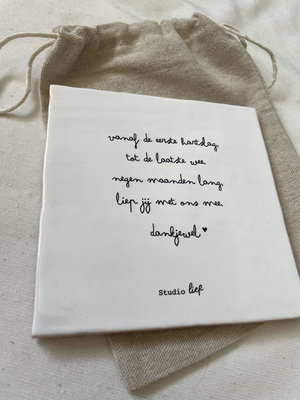 vanaf de eerste hartslag,
tot de laatste wee.
negen maanden lang,
liep jij met ons mee.
dankjewel ♥
Studio lief